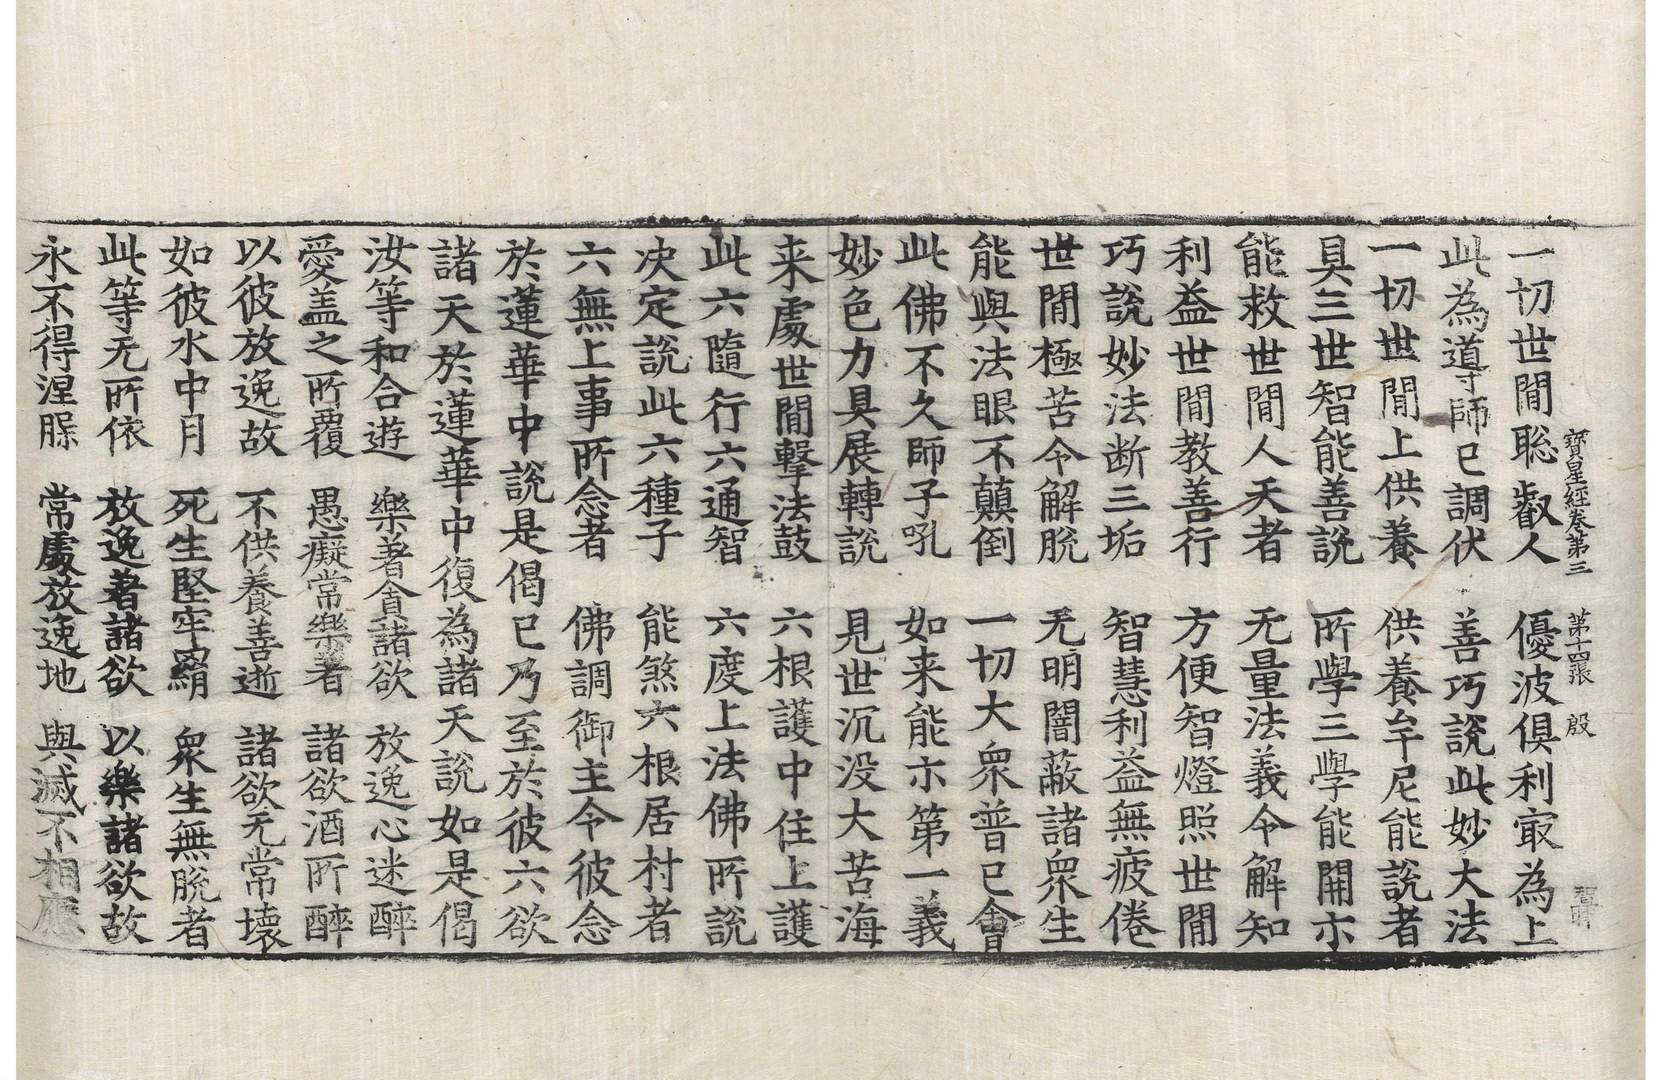 寶星經卷第三 第十四張 殷
一切世間聡叡人 優波俱利㝡為上
此為導師已調伏 善巧說此妙大法
一切世間上供養 供養牟尼能說者
具三世智能善說 所學三學能開示
能救世間人天者 无量法義令解知
利益世間教善行 方便智燈照世間
巧說妙法断三垢 智慧利益無疲倦
世間極苦令解脫 无明闇蔽諸衆生
能與法眼不顛倒 一切大衆普已會
此佛不久師子吼 如来能示第一義
妙色力具展轉說 見世沉没大苦海
来處世間擊法鼓 六根護中住上護
此六隨行六通智 六度上法佛所說
决定說此六種子 能煞六根居村者
六無上事所念者 佛調御主令彼念
於蓮華中說是偈已乃至於彼六欲
諸天於蓮華中復為諸天說如是偈
汝等和合遊 樂著貪諸欲 放逸心迷醉
愛盖之所覆 愚癡常樂著 諸欲酒所醉
以彼放逸故 不供養善逝 諸欲无常壞
如彼水中月 死生堅牢羂 衆生無脫者
此等无所依 放逸著諸欲 以樂諸欲故
永不得涅槃 常處放逸地 與滅不相應